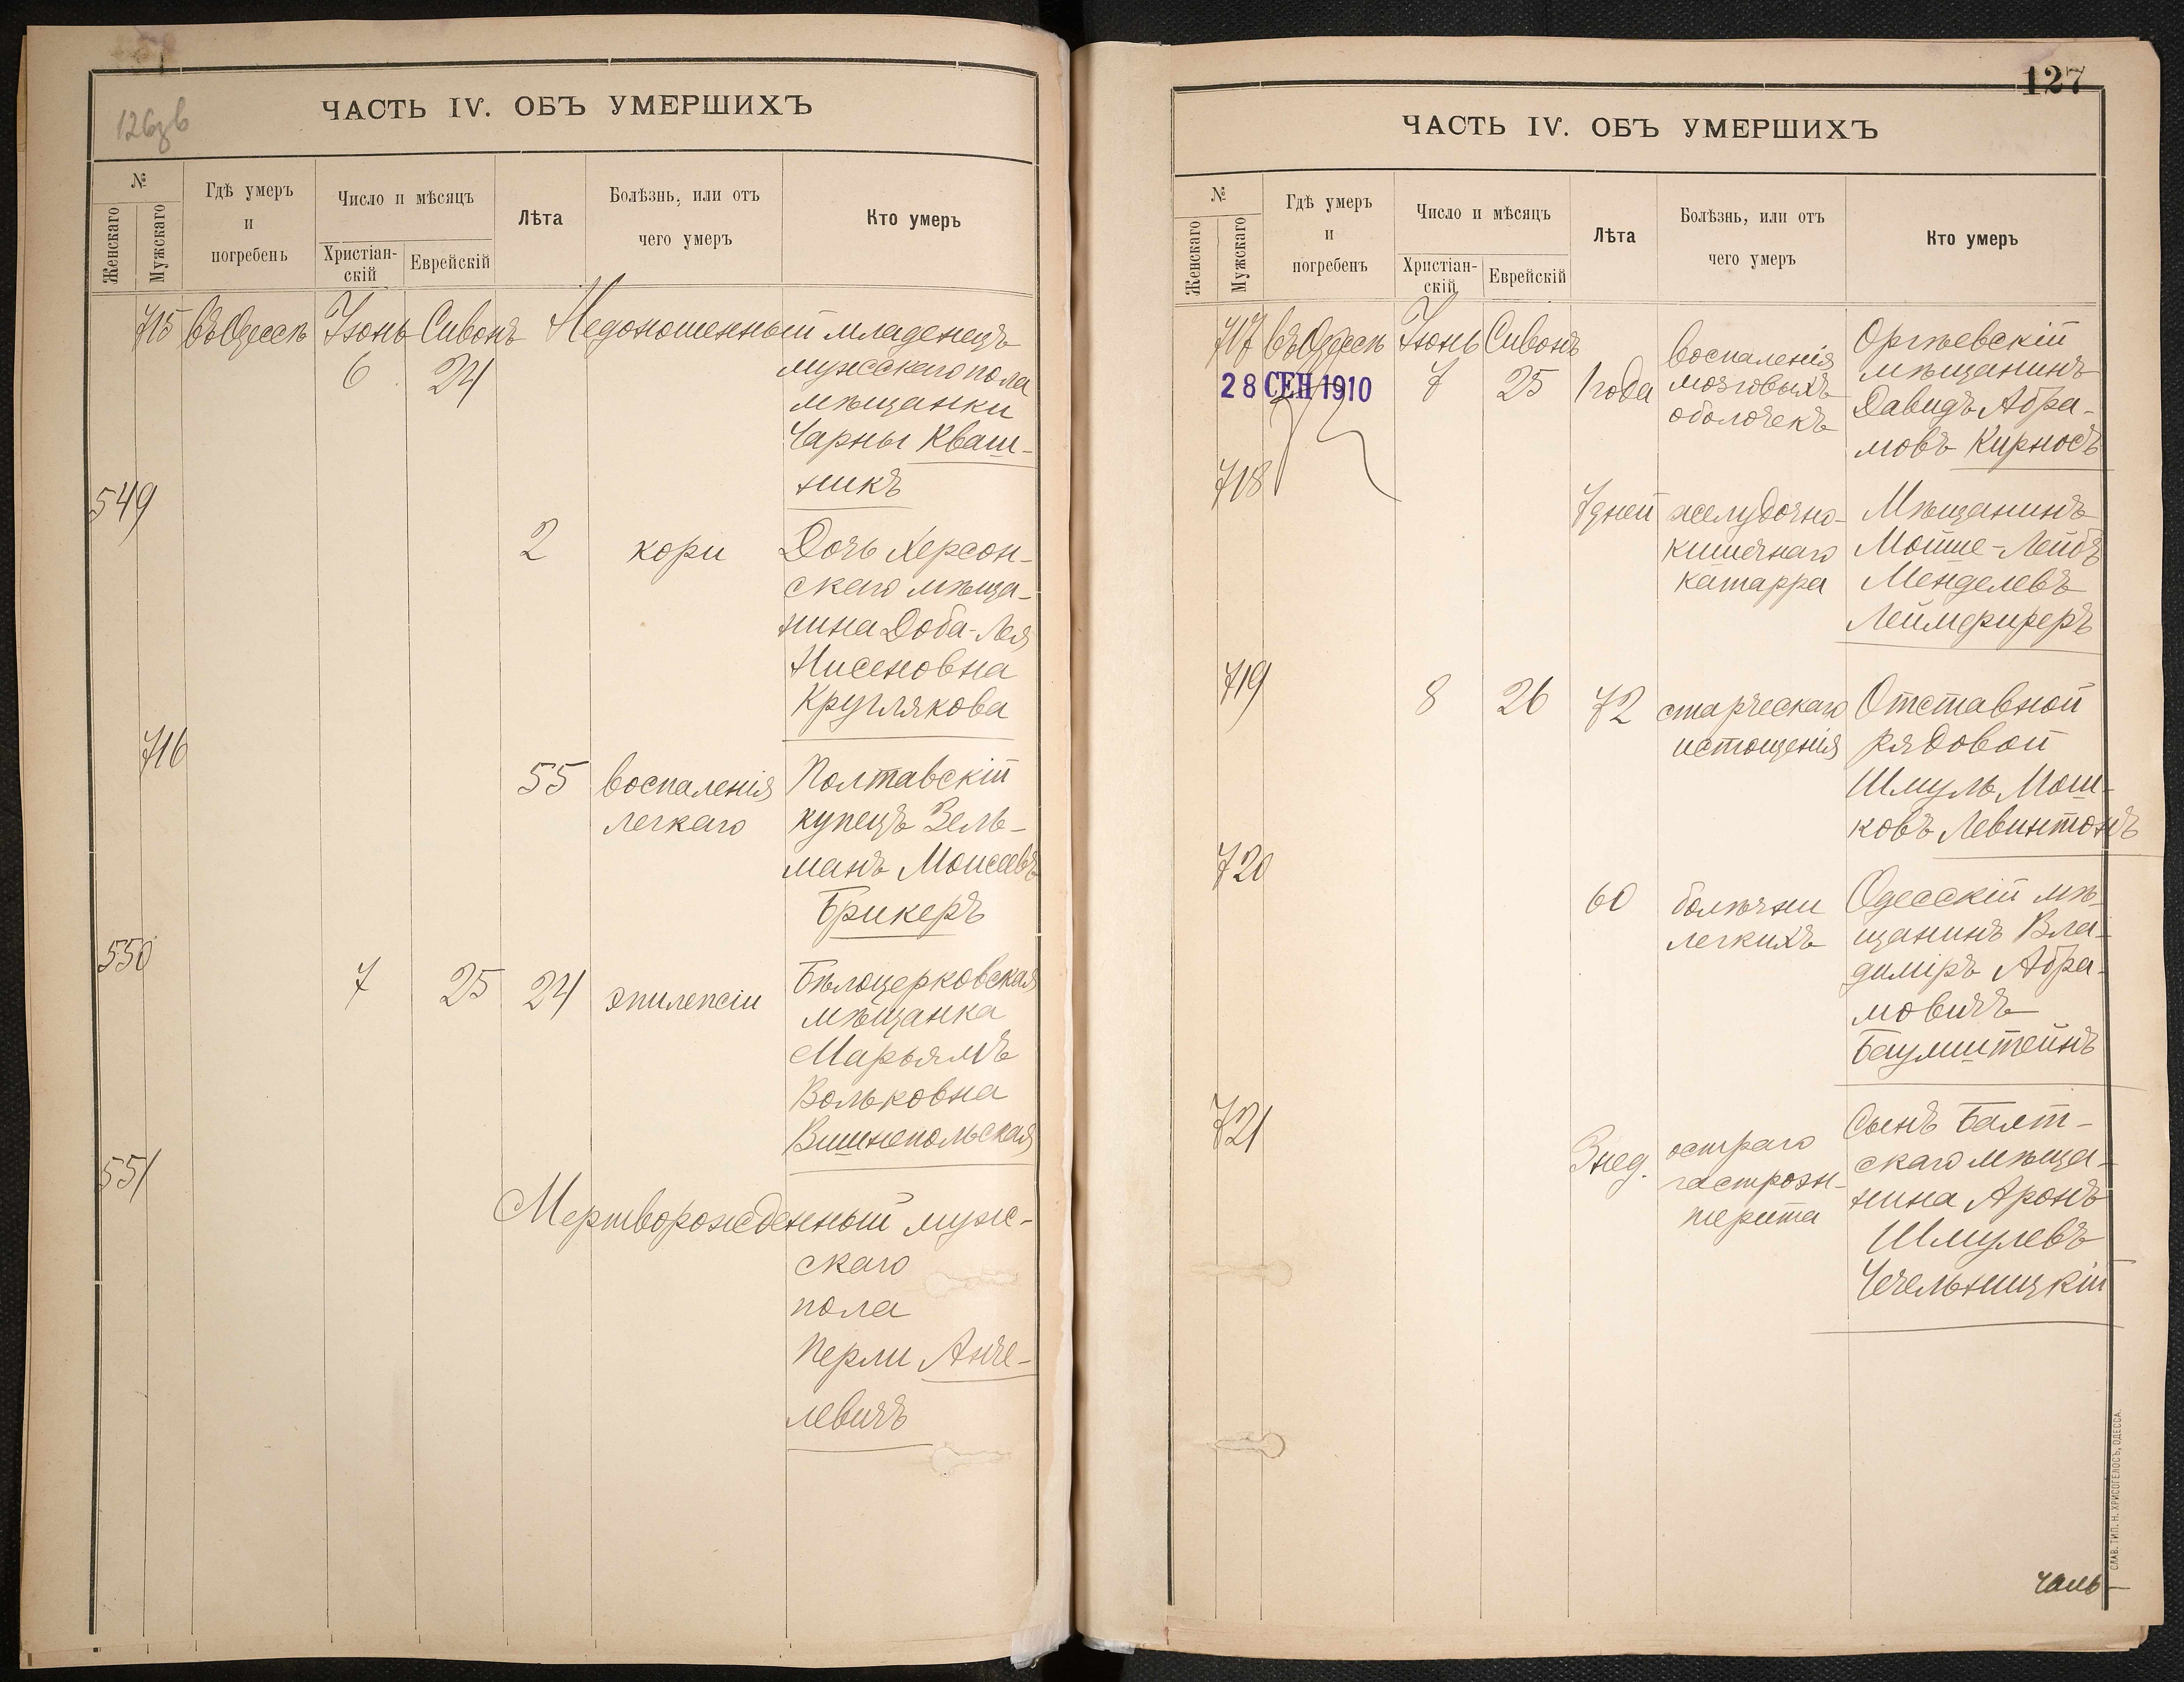 126зв
ЧАСТЬ IV. ОБЪ УМЕРШИХЪ
№
Женскаго
Мужскаго
Гдѣ умеръ
и
погребенъ
Число и мѣсяцъ
Христіан-
скій
Еврейскій
Лѣта
Болѣзнь, или отъ
чего умеръ
Кто умеръ
715 въ Одессѣ Іюнь Сивонъ Недоношенный младенецъ
6 24 мужскаго пола
мѣщанки
Чарны Кваш-
никъ
549
2 кори Дочь Херсон-
скаго мѣща-
нина Доба-Лея
Нисеновна
Круглякова
716
55 воспаленія Полтавскій
легкаго купецъ Зель-
манъ Моисеевъ
Брикеръ
550
7 25 24 эпилепсіи Бѣлоцерковская
мѣщанка
Марьямъ
Вольковна
Вишнепольская
551
Мертворожденный муж-
скаго
пола
Перли Анче-
левичъ
127
ЧАСТЬ IV. ОБЪ УМЕРШИХЪ
№
Женскаго
Мужскаго
Гдѣ умеръ
и
погребенъ
Число и мѣсяцъ
Христіан-
скій
Еврейскій
Лѣта
Болѣзнь, или отъ
чего умеръ
Кто умеръ
717 въ Одессѣ Іюнь Сивонъ
28 СЕН 1910
7 25 1 года воспаленія Оргѣевскій
мозговыхъ мѣщанинъ
оболочекъ Давидъ Абра-
мовъ Кирносъ
718
7 дней желудочно- Мѣщанинъ
кишечнаго Мошше-Лейбъ
катарра Менделевъ
Леймфиреръ
719
8 26 72 старческаго Отставной
истощенія рядовой
Шмуль Мош-
ковъ Левинтонъ
720
60 болѣзни Одесскій мѣ-
легкихъ щанинъ Вла-
диміръ Абра-
мовичъ
Баумштейнъ
721
3 нед. остраго Сынъ Балт-
гастроэн- скаго мѣща-
терита нина Аронъ
Шмулевъ
Чечельницкій
СЛАВ. ТИП. Н. ХРИСОГЕЛОСЪ, ОДЕССА.